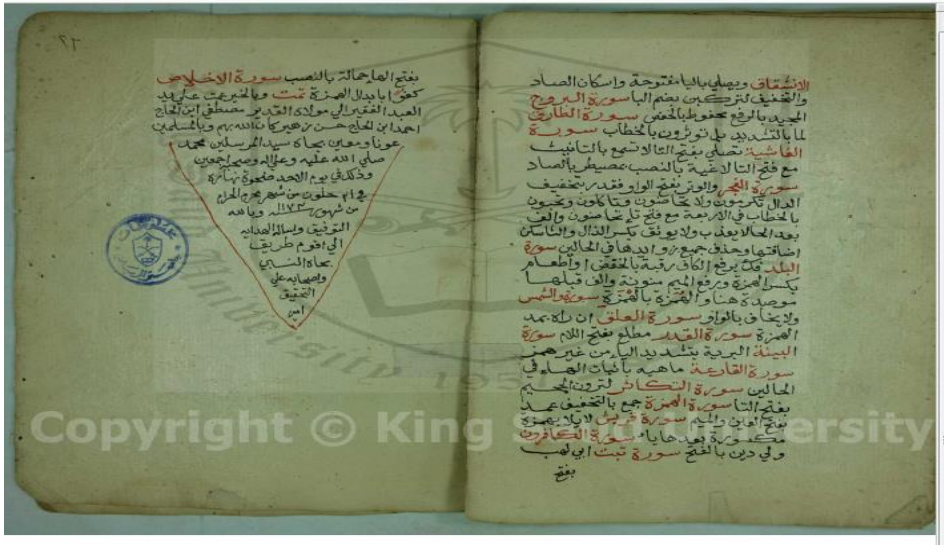 الانشقاق ويصلى بالياء مفتوحة واسكان الصاد
والتخفيف لتركبن بضم البا سورة البروج
المجيد بالرفع محفوظ بالخفض سورة الطارق
لما بالتشديد بل توثرون بالخطاب سورة
الغاشية تصلى بفتح التا لا تسمع بالتانيث
مع فتح التا لاغية بالنصب بمصيطر بالصاد
سورة الفجر والوتر بفتح الواو فقدر بتخفيف
الدال تكرمون ولا تحاضون وتاكلون وتحبون
بالخطاب في الاربعة مع فتح تاء تحاضون والف
بعد الحا لا يعذب ولا يوثق بكسر الذال والثا
اضافتها وحذف جميع زوايدها في الحالين سورة
البلد فك برفع الكاف رقبة بالخفض او اطعام
بكسر الهمزة ورفع الميم منونة والف قبلها
موصدة هنا و الهمزة بالهمزة سورة والشمس
ولا يخاف بالواو سورة العلق ان راه بمد
الهمزة سورة القدر مطلع بفتح اللام سورة
البينة البرية بتشديد الياء من غير همز
سورة القارعة ماهيه باثبات الهاء في
الحالين سورة التكاثر لترون الجحيم
بفتح التا سورة الهمزة جمع بالتخفيف عمد
بفتح العين والميم سورة قريش لايلاف بهمزة
مكسورة بعدها ياء سورة الكافرون
ولي دين بالفتح سورة تبت ابي لهب
بفتح
٢٣
بفتح الها حمالة بالنصب سورة الاخلاص
كفوا بابدال الهمزة تمت وبالخير عمت على يد
العبد الفقير الى مولاه القدير مصطفى ابن الحاج
احمد ابن الحاج حسن زهير كان الله بهم وبالمسلمين
عونا ومعين بجاه سيد المرسلين محمد
صلى الله عليه وعلى اله وصحبه اجمعين
وذلك في يوم الاحد ضحوة نهاره
خلون من شهر محرم الحرام
من شهور ١١٧٣ وبالله
التوفيق واساله الهدايه
الى اقوم طريق
بجاه النبي
واصحابه على
التحقيق
امين
Copyright © King Saud University
1957